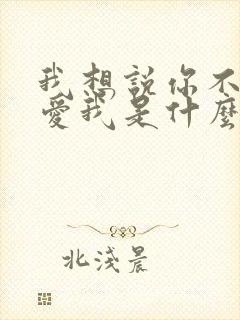 我想說你不
愛我是什麼
北淺晨